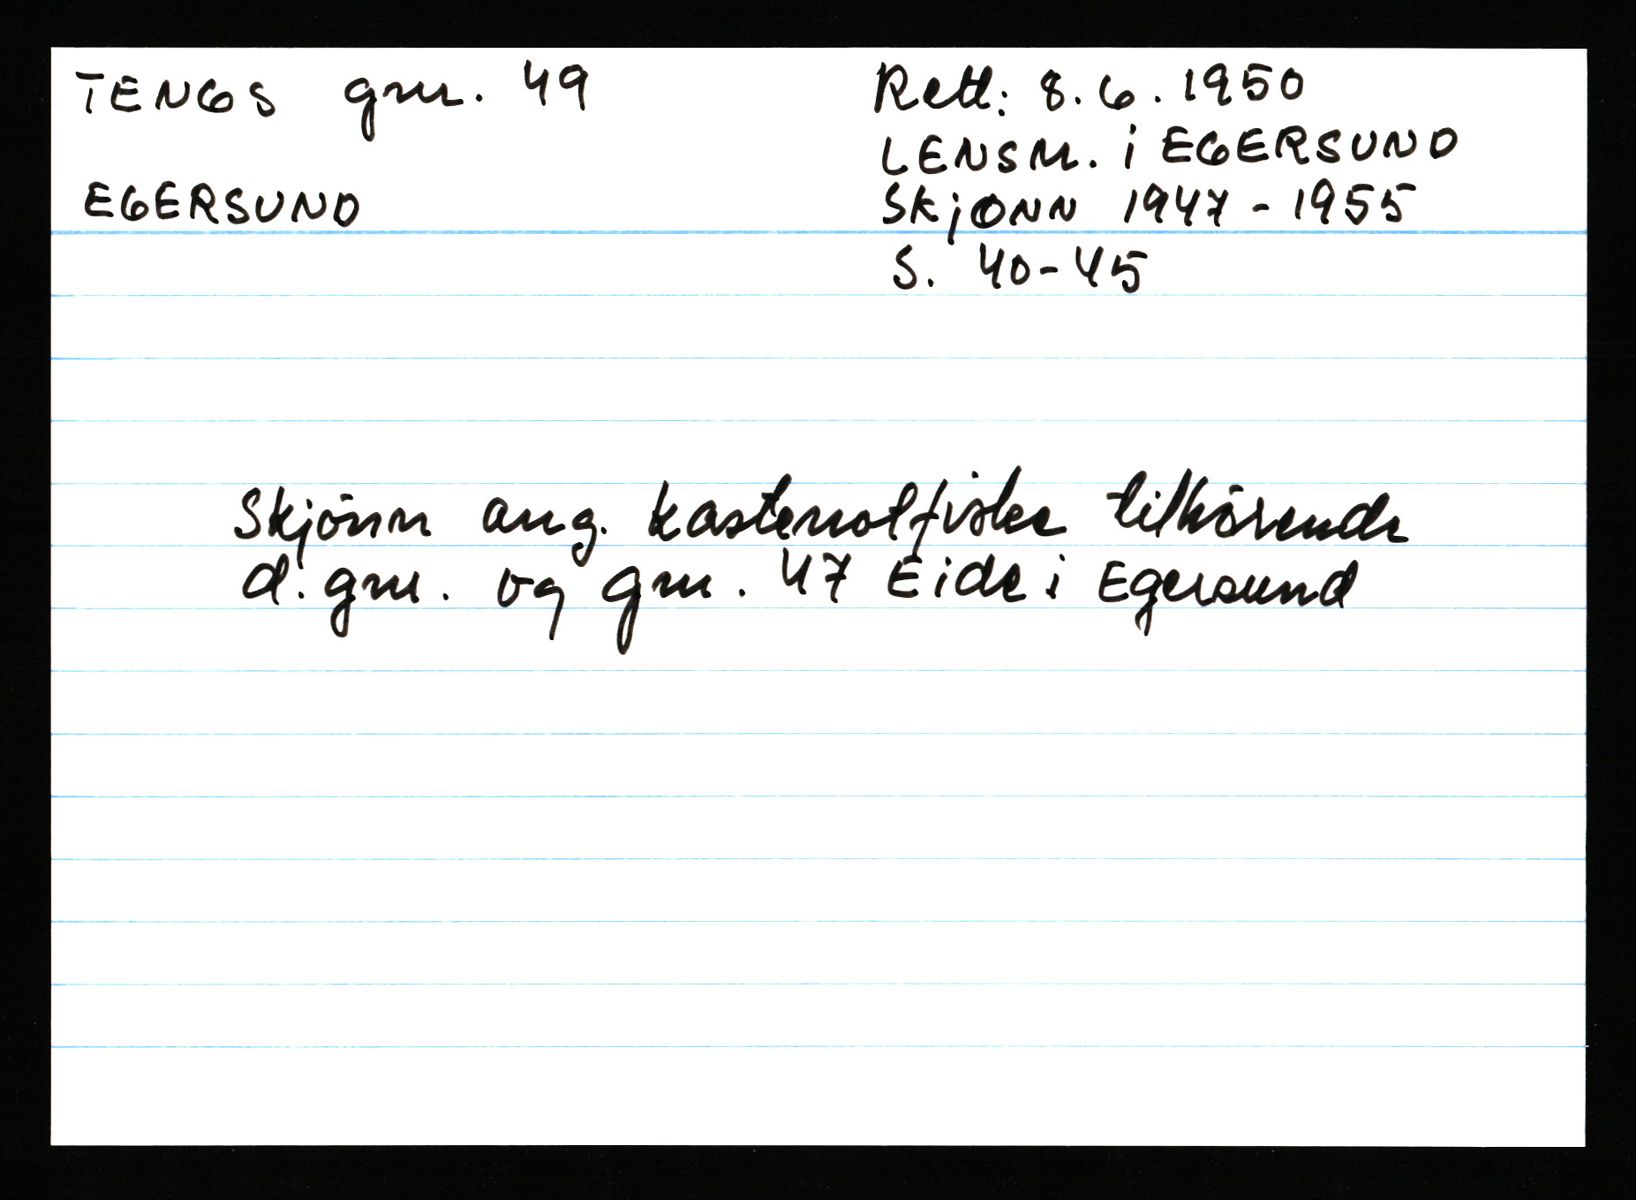 TENGS gnr. 49
EGERSUND
Rett: 8.6.1950
LENSM. i EGERSUND
SKJØNN 1947-1955
S. 40-45
Skjönn ang. kastenotfiske tilhörende
d. gnr. og gnr. 47 Eide i Egersund